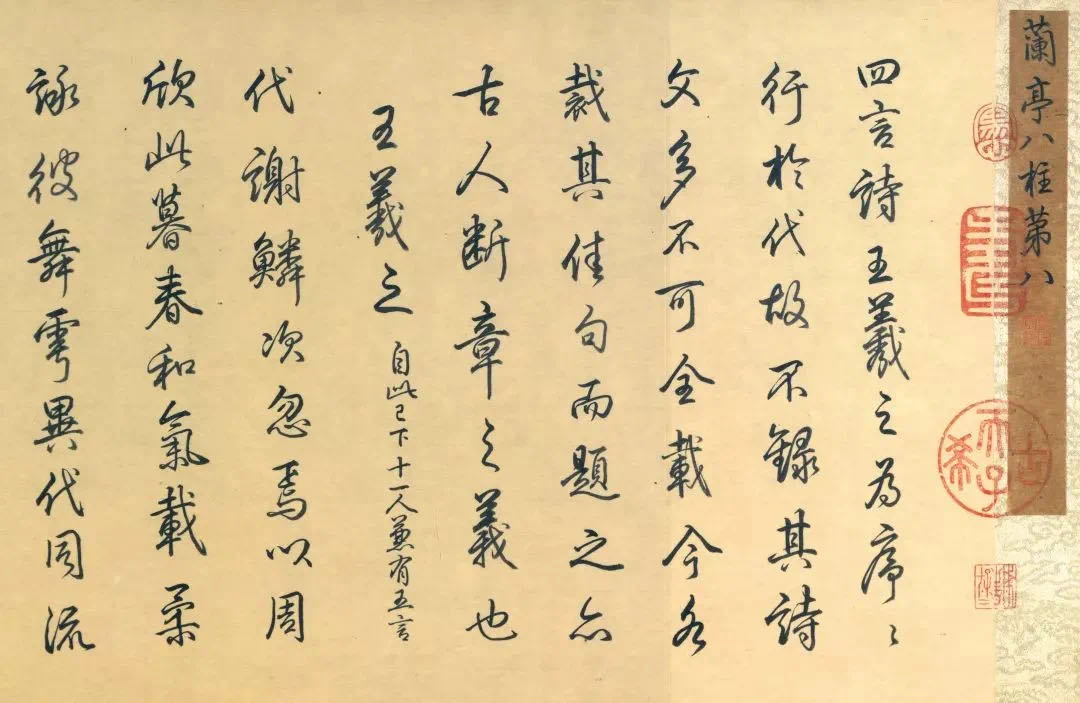 蘭亭八柱第八
四言詩王羲之為序〻
行於代故不錄其詩
文多不可全載今各
裁其佳句而題之亦
古人断章之義也
王羲之 自此已下十一人兼有五言
代謝鱗次忽焉以周
欣此暮春和氣載柔
詠彼舞雩異代同流
古希天子